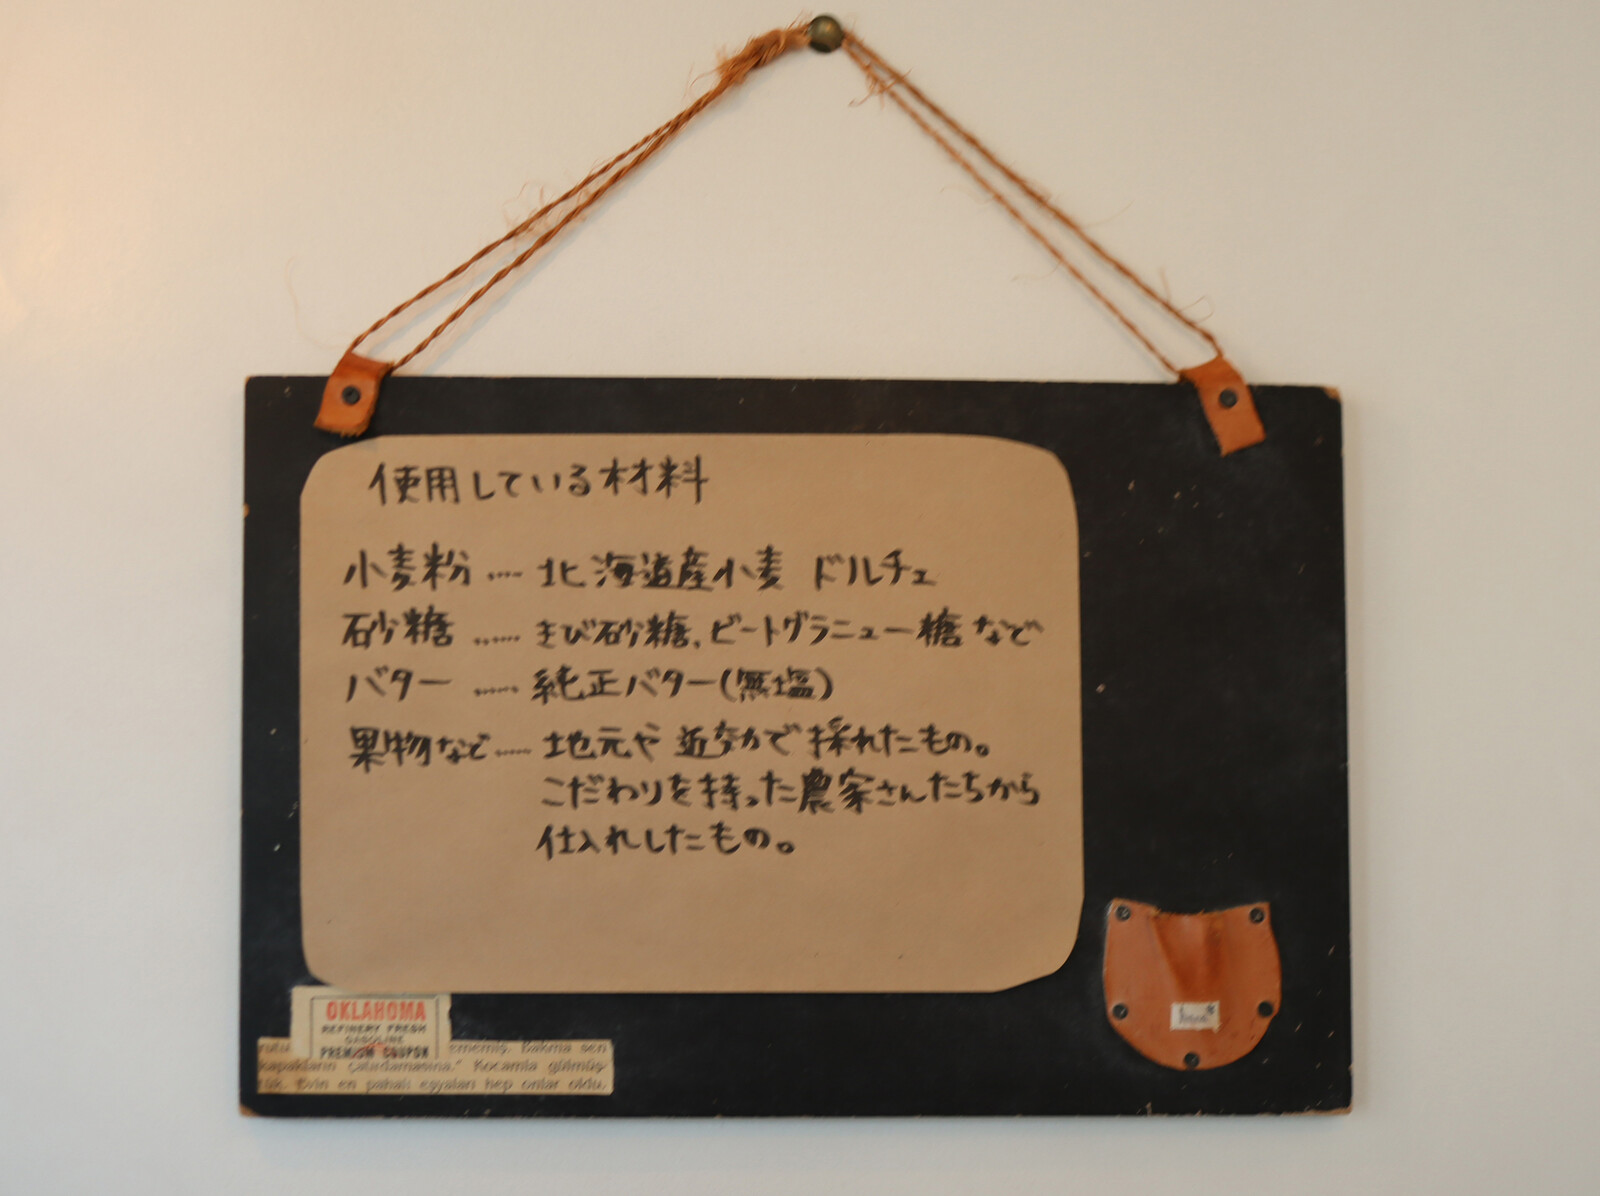 使用している材料
小麦粉 ‥‥ 北海道産小麦 ドルチェ
砂糖 ‥‥‥ きび砂糖、ビートグラニュー糖 など
バター ‥‥‥ 純正バター(無塩)
果物など‥‥‥ 地元や 近郊で 採れたもの。
こだわりを持った農家さんたちから
仕入れしたもの。
OKLAHOMA
REFINERY FRESH
GASOLINE
PREMIUM COUPON
ememiş. Bakma sen
kapakların çatırdamasına." Kocamla gülmüş-
tük. Evin en pahalı eşyaları hep onlar oldu.